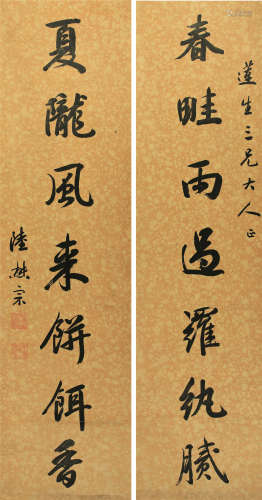 蓮生三兄大人正
春畦雨過羅紈膩
夏隴風来餅餌香
陸懋宗